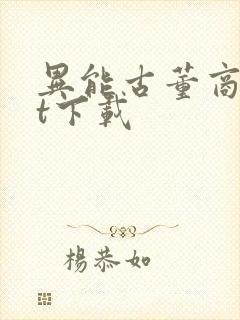 異能古董商
t下載
楊恭如